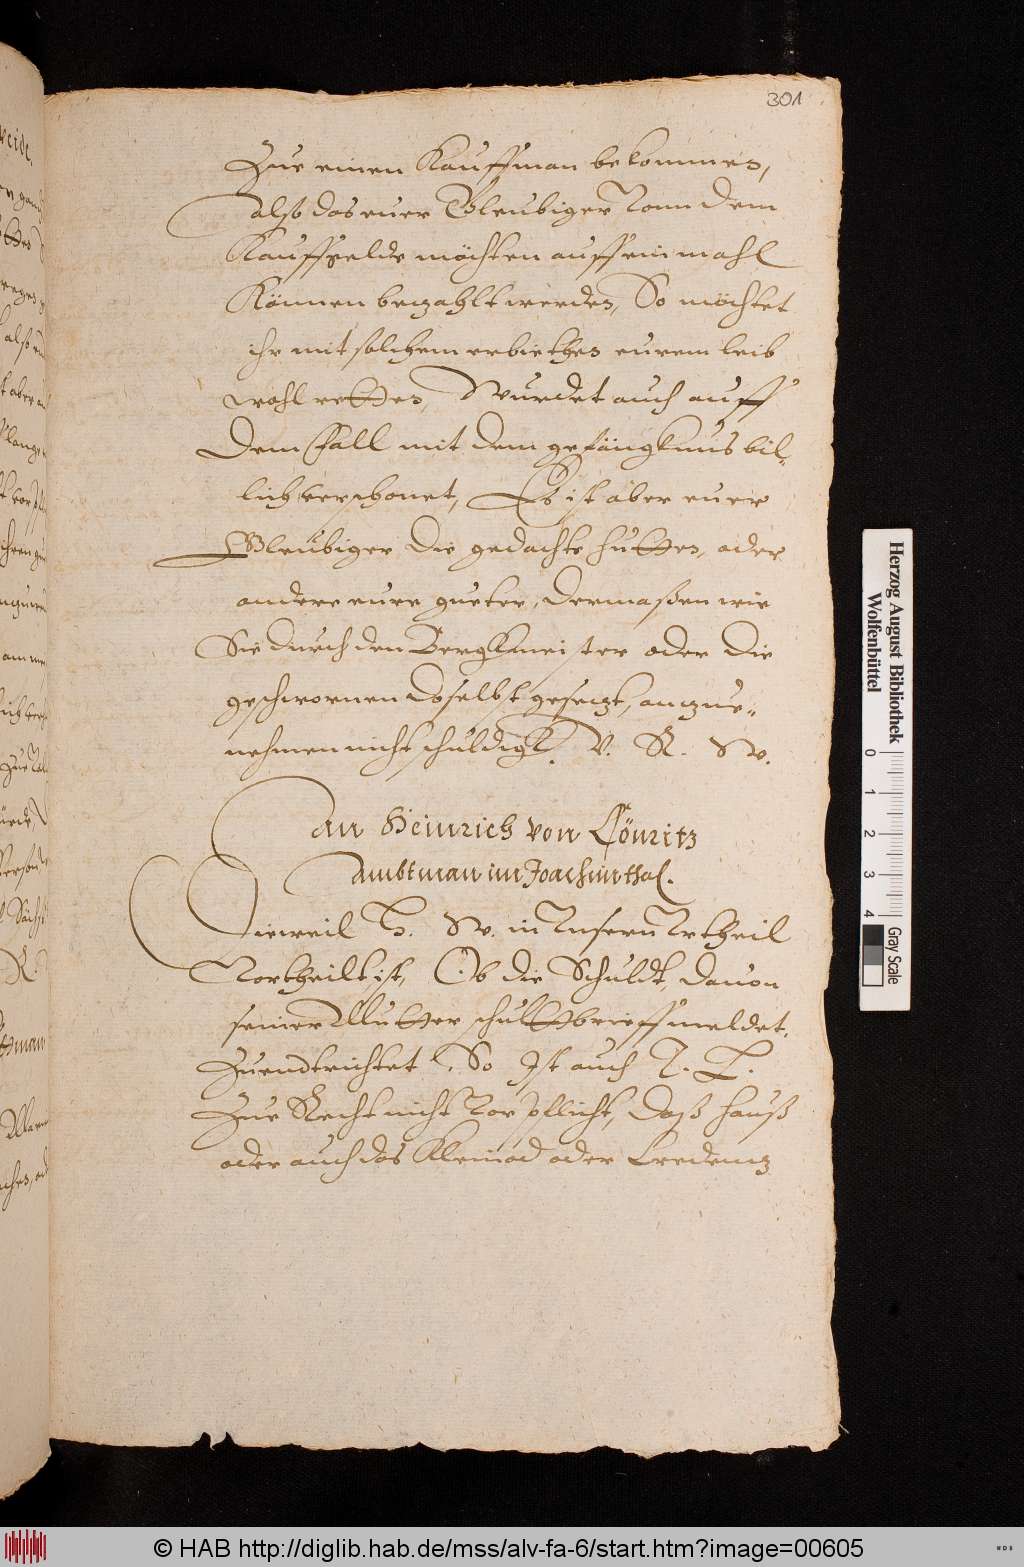 301
Zue einen Kauffman bekommen,
also das euer Gleubiger von dem
Kauffgelde möchten auff ein mahl
Können bezahlt werden, So möchtet
ihr mit solchem erbiethen eurem leib
wohl retten, Wurdet auch auff
dem Fall mit dem gefängknus bil-
lich verschonet, Es ist aber euer
Gleubiger die gedachte hutten, oder
andere eure gueter, dermaßen wie
Sie durch den Bergkmeister oder die
geschwornen doselbst gesetzt, anzue-
nehmen nicht schuldigk. V. R. W.
An Heinrich von Könritz
Ambtman im Joachimthal.
Dieweil H. W. in Unsern Urtheil
Vortheilt ist, Ob die Schuldt, davon
seiner Mutter schultbrieff meldet,
Zuendtrichtet. So Ist auch V. L.
Zue Recht nicht Vorpflicht, daß hauß
oder auch das Kleinod oder Credentz
Herzog August Bibliothek
Wolfenbüttel
0 1 2 3 4
Gray Scale
© HAB http://diglib.hab.de/mss/alv-fa-6/start.htm?image=00605